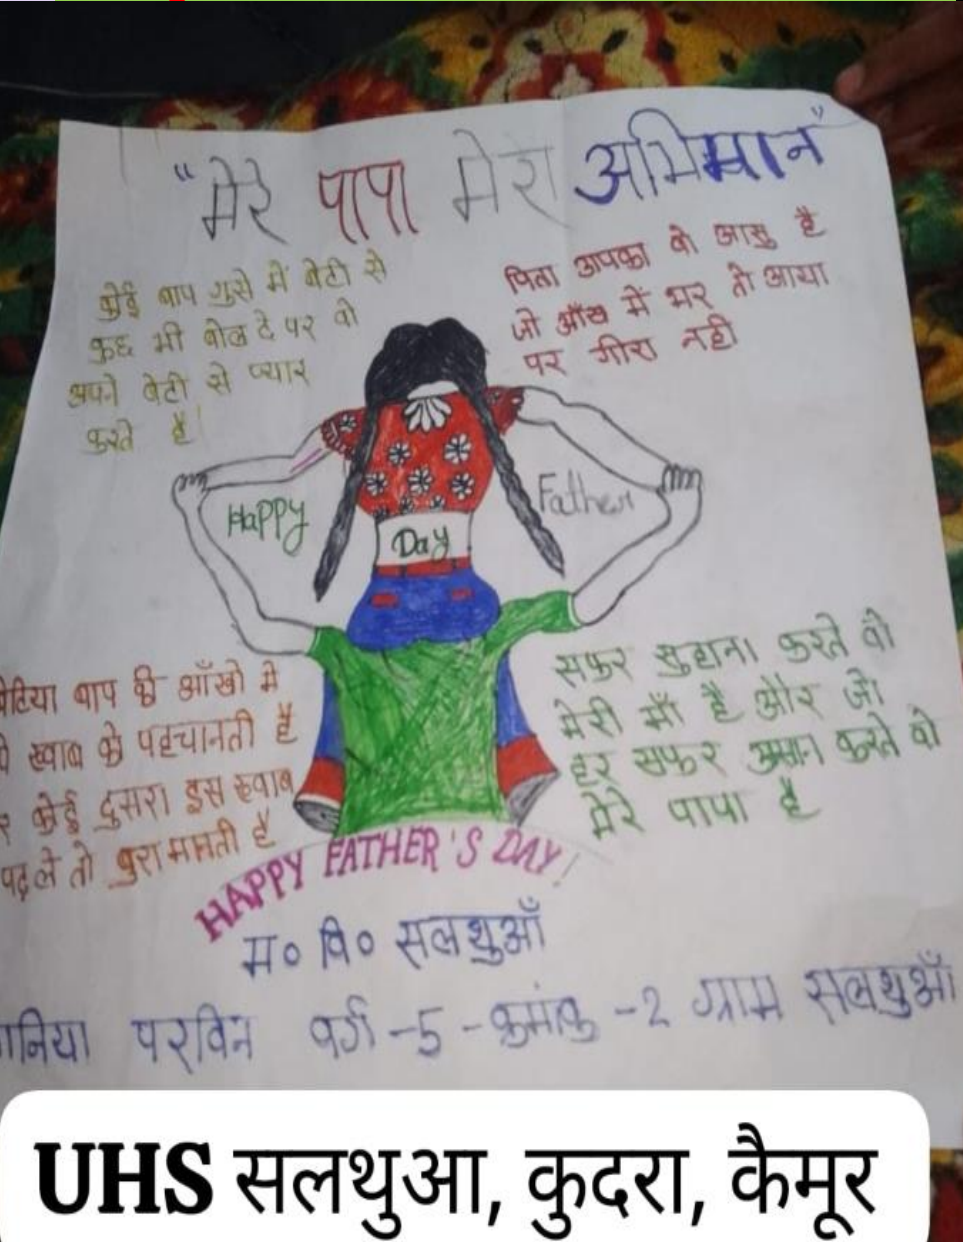 "मेरे पापा मेरा अभिमान"
कोई बाप गुसे में बेटी से
कुछ भी बोल दे पर वो
अपने बेटी से प्यार
करते है!
पिता आपका वो आसु है
जो आँख में भर तो आया
पर गीरा नही
Happy
Father
Day
बेटिया बाप की आँखो मे
ख्वाब को पहचानती है
कोई दुसरा इस ख्वाब
पढ़ ले तो बुरा मानती है
सफर सुहाना करते वो
मेरी माँ है और जो
हर सफर असान करते वो
मेरे पापा है
HAPPY FATHER'S DAY!
म० वि० सलथुआँ
परविन वर्ग -5 - क्रमांक -2 ग्राम सलथुआँ
UHS सलथुआ, कुदरा, कैमूर